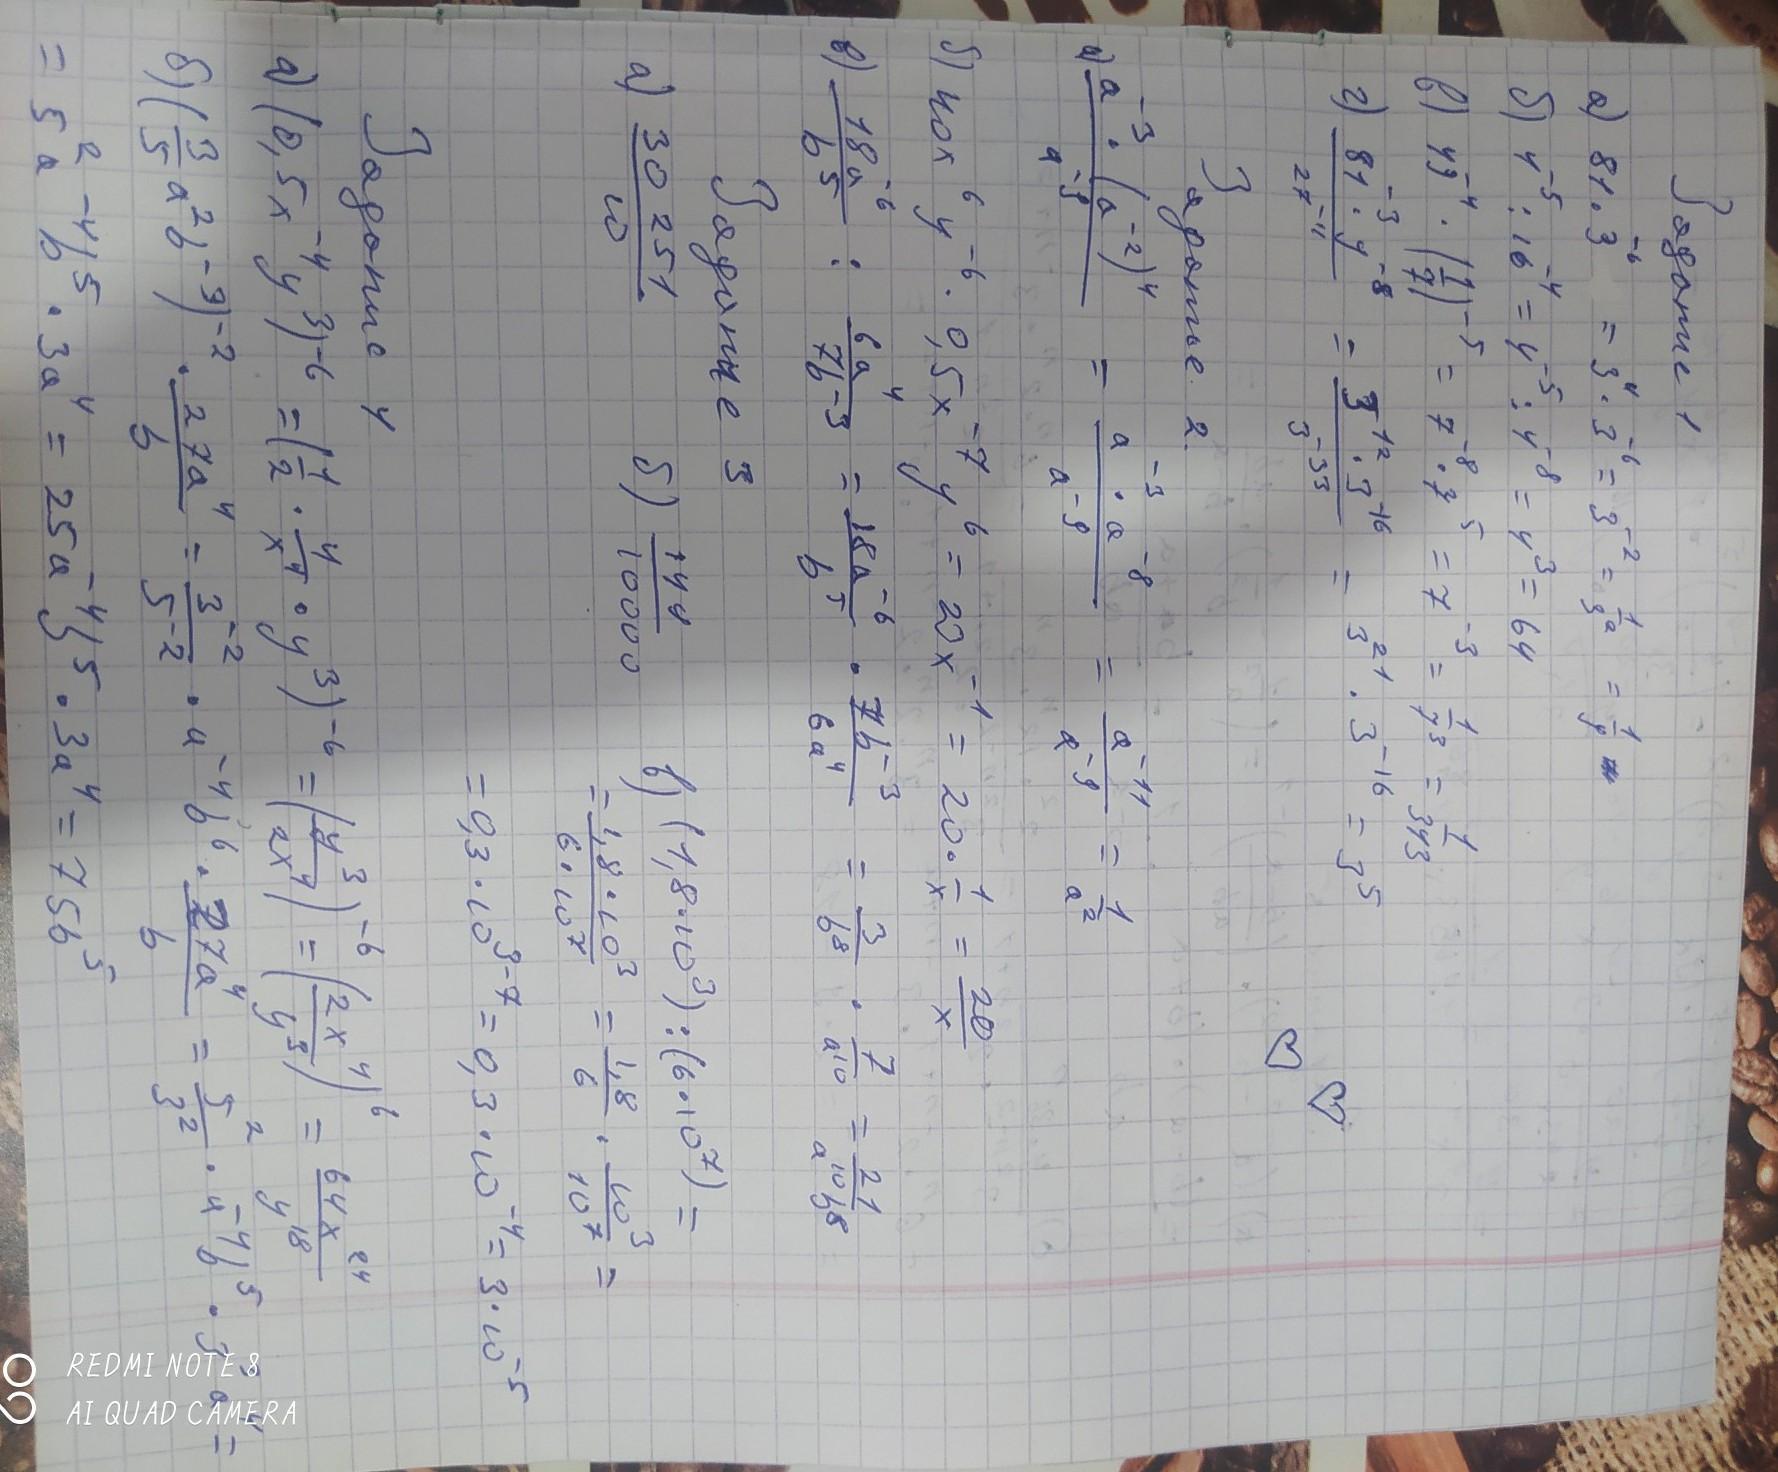 Задание 1
а) 81·3⁻⁶ = 3⁴·3⁻⁶ = 3⁻² = 1/3² = 1/9
б) 4⁻⁵ : 16⁻⁴ = 4⁻⁵ : 4⁻⁸ = 4³ = 64
в) 49⁻⁴ · (1/7)⁻⁵ = 7⁻⁸ · 7⁵ = 7⁻³ = 1/7³ = 1/343
Задание 2.
а) a⁻³ · (a⁻²)⁴ / a⁻⁹ = a⁻³ · a⁻⁸ / a⁻⁹ = a⁻¹¹ / a⁻⁹ = 1/a²
б) 40x⁶y⁻⁶ · 0,5x⁻⁷y⁶ = 20x⁻¹ = 20 · 1/x = 20/x
в) 18a⁻⁶/b⁵ : 6a⁴/7b⁻³ = 18a⁻⁶/b⁵ · 7b⁻³/6a⁴ = 3/b⁸ · 7/a¹⁰ = 21/a¹⁰b⁸
Задание 3
а) 30251/10 б) 144/10000 в) (1,8·10³) : (6·10⁷) =
= 1,8·10³/6·10⁷ = 1,8/6 · 10³/10⁷ =
= 0,3·10³⁻⁷ = 0,3·10⁻⁴ = 3·10⁻⁵
Задание 4
а) (0,5x⁻⁴y³)⁻⁶ = (1/2 · 1/x⁴ · y³)⁻⁶ = (y³/2x⁴)⁻⁶ = (2x⁴/y³)⁶ = 64x²⁴/y¹⁸
б) (3/5 a²b⁻³)⁻² · 27a⁴/b = 3⁻²/5⁻² · a⁻⁴b⁶ · 27a⁴/b = 5²/3² · a⁻⁴b⁵ · 3³a⁴ =
= 5²a⁻⁴b⁵ · 3a⁴ = 25a⁻⁴b⁵ · 3a⁴ = 75b⁵
REDMI NOTE 8
AI QUAD CAMERA